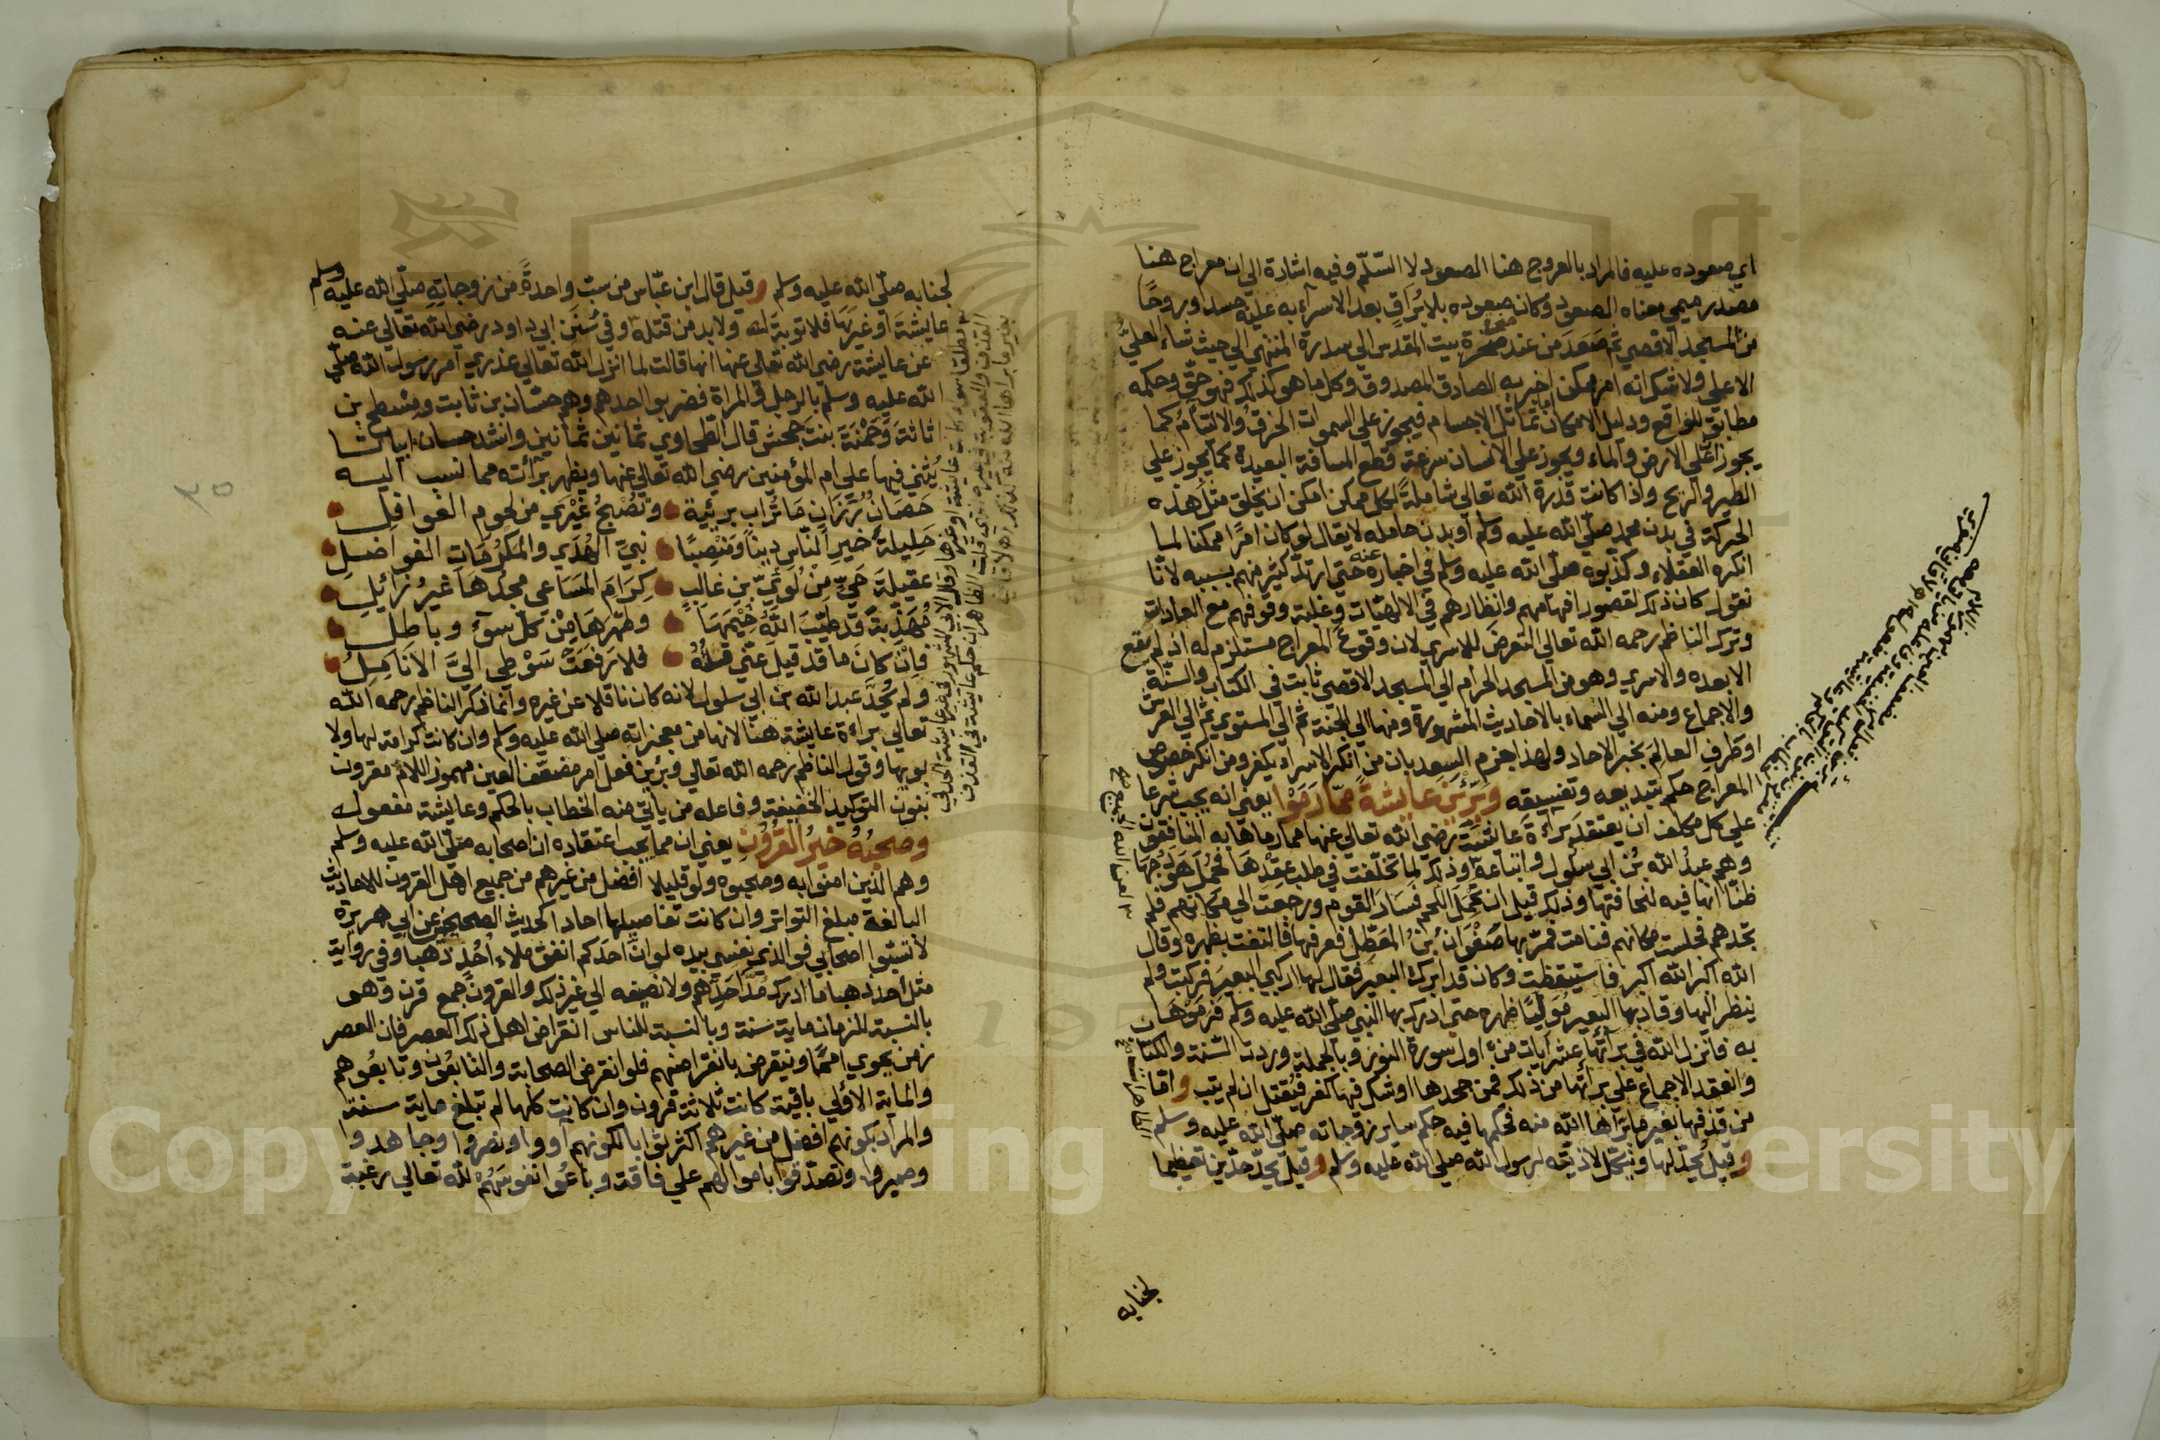 اي صعوده عليه فالمراد بالعروج هنا الصعود لا السّلّم وفيه اشارة الى ان معراج هنا
مصدر ميمي معناه الصعود وكان صعوده بالبراق بعد الاسراء به عليه جسدا وروحًا
من المسجد الاقصي ثم صعد من عند صخرة بيت المقدس الي سدرة المنتهي الي حيث شاء العليّ
الاعلي ولا شك انه امر ممكن اخبر به الصادق المصدوق وكل ما هو كذلك فهو حق وحكمه
مطابق للواقع ودليل الامكان تماثل الاجسام فيجوز على السموات الخرق والالتئام كما
يجوز علي الارض والماء ويجوز علي الانسان سرعة قطع المسافة البعيدة كما يجوز علي
الطير والريح واذا كانت قدرة الله تعالي شاملة لكل ممكن امكن ان يخلق مثل هذه
الحركة في بدن محمد صلّي الله عليه وسلم او بدن حامله لا يقال لو كان امرًا ممكنا لما
انكره العقلاء وكذبوه صلّي الله عليه وسلم في اخباره عنه حتي ارتد كثير منهم بسببه لانا
نقول كان ذلك لقصور افهامهم وانظارهم في الالهيّات وغلبة وقوفهم مع العادات
وترك الناظم رحمه الله تعالي التعرض للاسري لان وقوع المعراج مستلزم له اذ لم يقع
الا بعده والاسري وهو من المسجد الحرام الي المسجد الاقصي ثابت في الكتاب والسنّة
والاجماع ومنه الي السماء بالاحاديث المشهورة ومنها الي الجنة ثم الي المستوي ثم الي العرش
او طرف العالم بخبر الاحاد ولهذا جزم السعد بان من انكر الاسراء يكفر ومن انكر خصوص
المعراج حكم بتبديعه وتفسيقه وبرّئن عايشة ممّا رموا يعني انه يجب شرعا
علي كل مكلف ان يعتقد براءة عائشة رضي الله تعالي عنها مما رماها به المنافقون
وهم عبد الله بن ابي سلول واتباعه وذلك لما تخلفت في طلب عقدها فحمل هودجها
ظنّا انها فيه لنحافتها وذلك قبل ان تحمل اللحم فسار القوم ورجعت الي مكانهم فلم
تجدهم فجلست مكانهم فنامت فمرّ بها صفوان بن المعطّل فعرفها فالتفت بظهره وقال
الله اكبر الله اكبر فاستيقظت وكان قد ابرك البعير فقال لها اركبي البعير فركبت ولم
ينظر اليها وقاد بها البعير موليًا ظهره حتي ادرك بها النبي صلّي الله عليه وسلم فرموها
به فانزل الله في برائتها عشر آيات من اول سورة النور وبالجملة وردت السنة والكتاب
وانعقد الاجماع علي برائتها من ذلك فمن جحدها او شك فيها كفر فيقتل ان لم يتب واما
من قذفها بغير ما برأها الله منه فحكمها فيه حكم ساير زوجاته صلّي الله عليه وسلم
وقيل يحدّ لها وينكل لاذيته لرسول الله صلي الله عليه وسلم وقيل يحدّ حدّين تعظيما
لجنابه
لجنابه صلّي الله عليه وسلم وقيل قال ابن عباس من سبّ واحدةً من زوجاته صلّي الله عليه وسلم
عايشة او غيرها فلا توبة له ولا بد من قتله وفي سنن ابي داود رضي الله تعالي عنه
عن عايشة رضي الله تعالى عنها انها قالت لما انزل الله تعالي عذري امر رسول الله صلّي
الله عليه وسلم بالرجلين والمراة فضربوا حدهم وهم حسّان بن ثابت ومسطح بن
اثاثة وحمنة بنت جحش قال الطحاوي ثمانين ثمانين وانشد حسان ابياتا
يثني فيها على ام المؤمنين رضي الله تعالي عنها ويظهر برائته مما نسب اليه
حصان رزان ما تراب بريئة وتصبح غيري من لحوم الغوافل
حليلة خير الناس دينا ومنصبًا نبيّ الهدي والمكرمات الفواضل
عقيلة حيّ من لويّ بن غالب كرام المساعي مجدها غير زائل
مهذّبة قد طيّب الله خيمها وطهّرها من كل سوء وباطل
فان كان ما قد قيل عنّي قلته فلا رفعت سوطي اليّ الانامل
ولم يحدّ عبد الله بن ابي سلول لانه كان ناقلا عن غيره وانما ذكر الناظم رحمه الله
تعالي براءة عايشة هنا لانها من معجزاته صلي الله عليه وسلم وان كانت كرامة لها ولا
بويها وقول الناظم رحمه الله تعالي وبرّئن فعل امر مضعّف العين مهموز اللام مقرون
بنون التوكيد الخفيفة وفاعله من يأتي منه الخطاب بالحكم وعايشة مفعوله
وصحبه خير القرون يعني ان مما يجب اعتقاده ان اصحابه صلّي الله عليه وسلم
وهم الذين امنوا به وصحبوه ولو قليلا افضل من غيرهم من جميع اهل القرون للاحاديث
البالغة مبلغ التواتر وان كانت تفاصيلها احادا كحديث الصحيحين عن ابي هريرة
لا تسبّوا اصحابي فو الذي نفسي بيده لو انّ احدكم انفق ملاء احد ذهبا وفي رواية
مثل احد ذهبا ما ادرك مدّ احدهم ولا نصيفه الي غير ذلك والقرون جمع قرن وهو
بالنسبة للزمان ماية سنة وبالنسبة للناس انقراض اهل ذلك العصر فان العصر
زمن يحوي امما وينقرض بانقراضهم فلو انقرض الصحابة والتابعون وتابعوهم
والماية الاولي باقية كانت ثلاثة قرون وان كانت كلها لم تبلغ ماية سنة
والمراد بكونهم افضل من غيرهم اكثر ثوابا لكونهم آووا ونصروا وجاهدوا
وصبروا وتصدّقوا باموالهم علي فاقة وباعوا انفسهم لله تعالي رغبة